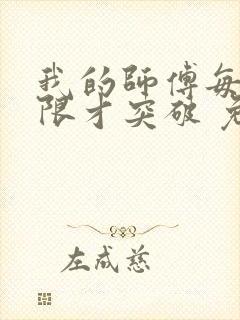 我的師傅每
限才突破
左成慈